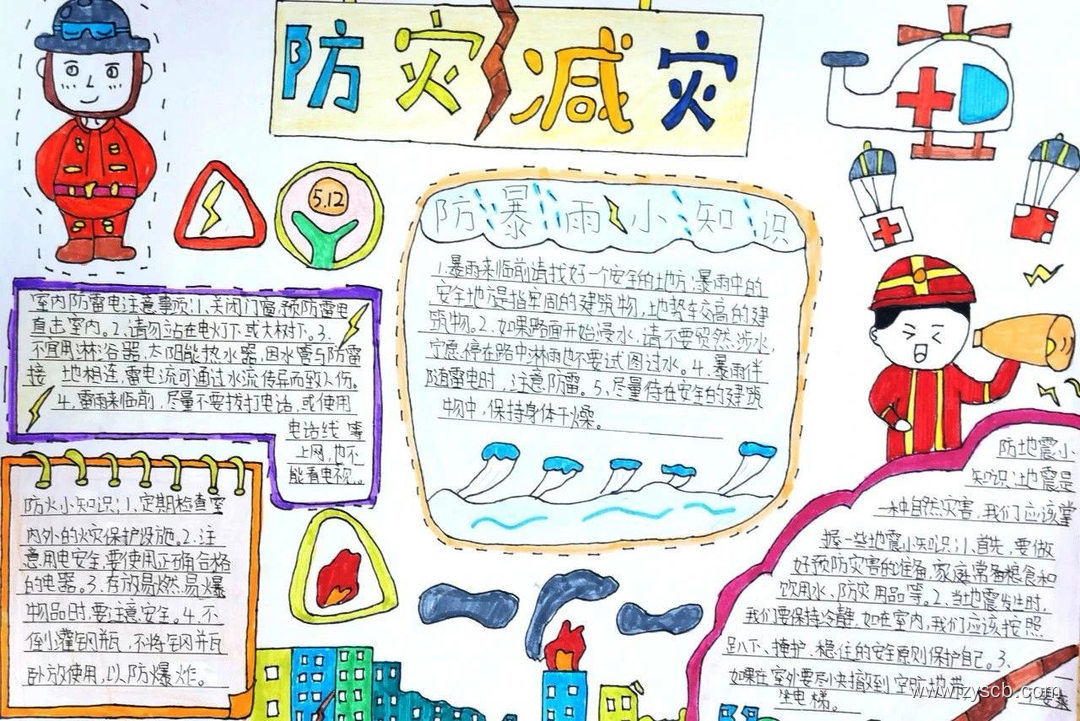 防灾减灾
5.12
防暴雨小知识
1.暴雨来临前请找好一个安全的地方,暴雨中的
安全地方是指牢固的建筑物,地势较高的建
筑物。2.如果路面开始浸水,请不要贸然涉水,
宁愿停在路中淋雨也不要试图过水。4.暴雨伴
随雷电时,注意防雷。5.尽量待在安全的建筑
物中,保持身体干燥。
室内防雷电注意事项:1.关闭门窗,预防雷电
直击室内。2.请勿站在电灯下或大树下。3.
不宜用淋浴器,太阳能热水器,因水管与防雷
接地相连,雷电流可通过水流传异而致人伤。
4.雷雨来临前,尽量不要拨打电话,或使用
电话线等
上网,也不
能看电视。
防火小知识:1.定期检查室
内外的火灾保护设施。2.注
意用电安全,要使用正确合格
的电器。3.存放易燃易爆
物品时,要注意安全。4.不
倒灌钢并瓦,不将钢并瓦
卧放使用,以防爆炸。
防地震小
知识:地震是
一种自然灾害,我们应该掌
握一些地震小知识:1.首先,要做
好预防灾害的准备,家庭常备粮食和
饮用水、防灾用品等。2.当地震发生时,
我们要保持冷静,如在室内,我们应该按照
趴下、掩护、稳住的安全原则保护自己。3.
如果在室外要尽快撤到空旷地带,不要乘
坐电梯。
www.zyscb.com